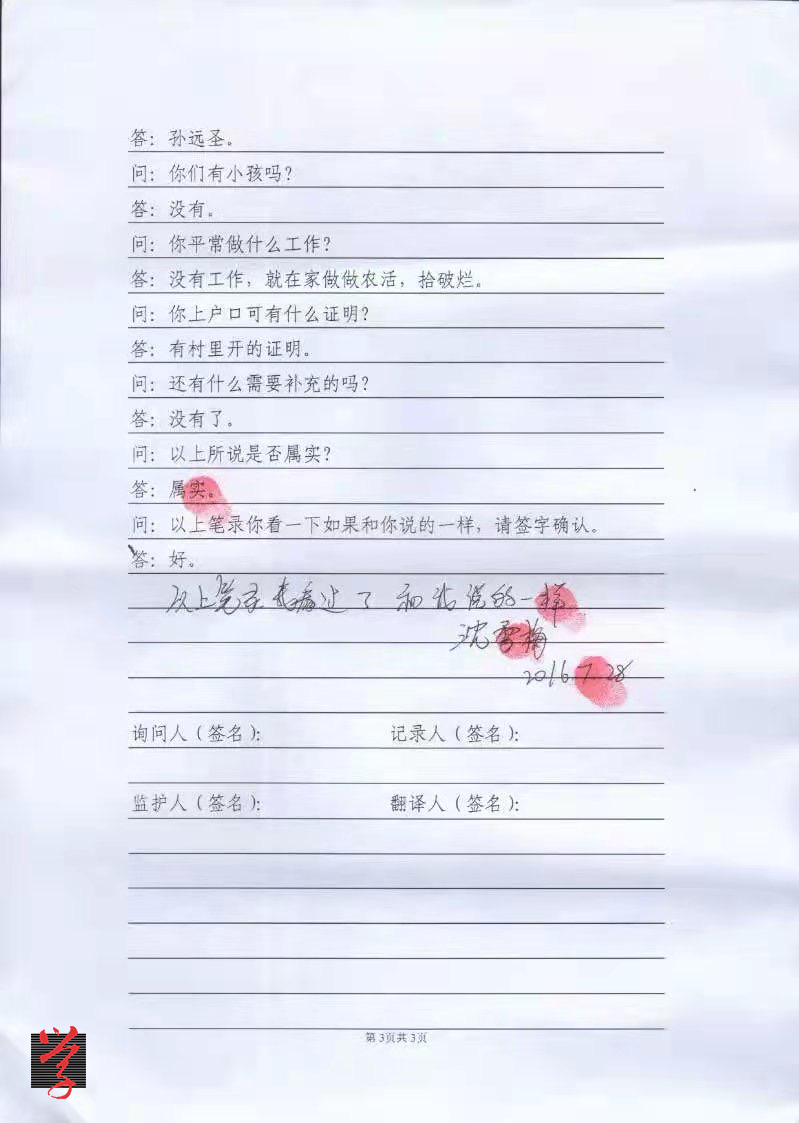 答：孙远圣。
问：你们有小孩吗？
答：没有。
问：你平常做什么工作？
答：没有工作，就在家做做农活，拾破烂。
问：你上户口可有什么证明？
答：有村里开的证明。
问：还有什么需要补充的吗？
答：没有了。
问：以上所说是否属实？
答：属实。
问：以上笔录你看一下如果和你说的一样，请签字确认。
答：好。
以上笔录我看过了 和我说的一样
沈雪梅
2016.7.28
询问人（签名）： 记录人（签名）：
监护人（签名）： 翻译人（签名）：
第3页共3页
学